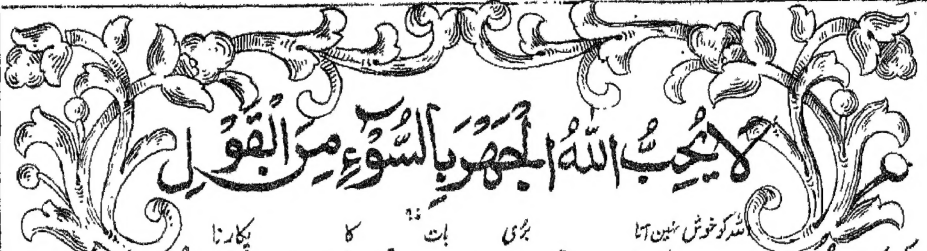 لَا يُحِبُّ اللهُ الْجَهْرَ بِالسُّوْٓءِ مِنَ الْقَوْلِ
اللہ کو خوش نہیں آتا بُری بات کا پکارنا